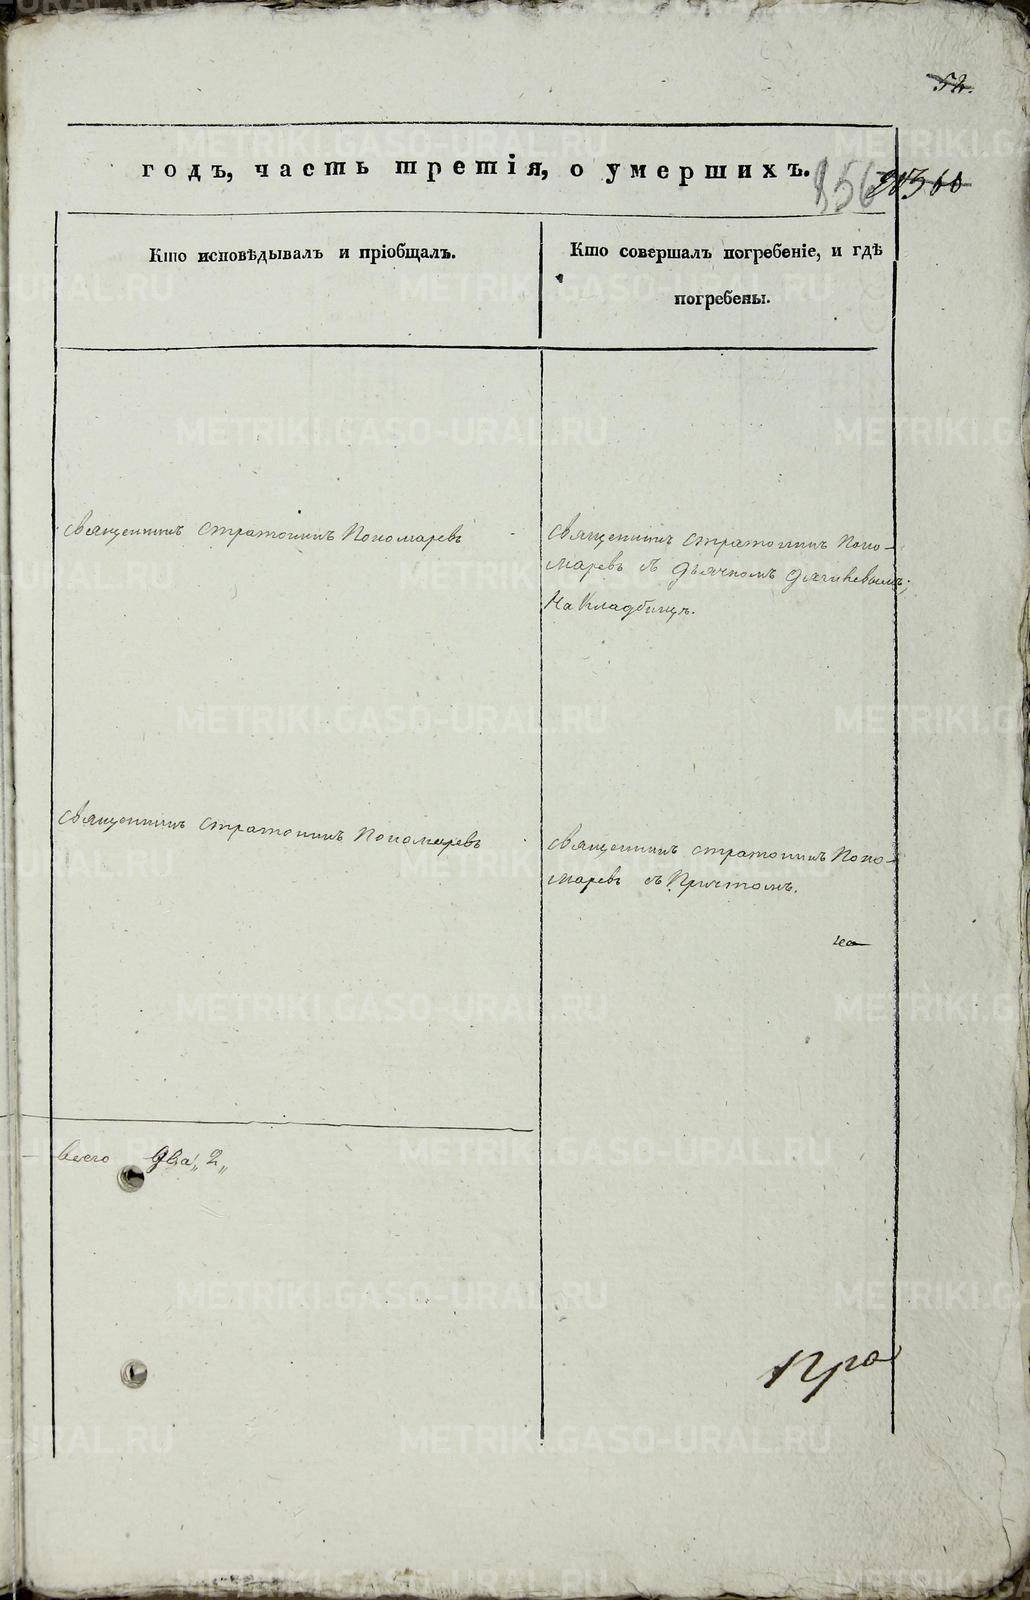 52.
годъ, часть третія, о умершихъ.
856
Кто исповѣдывалъ и пріобщалъ.
Кто совершалъ погребеніе, и гдѣ
погребены.
Священникъ Стратоникъ Пономаревъ
Священникъ Стратоникъ Поно-
маревъ съ Дьячкомъ
На Кладбищѣ.
Священникъ Стратоникъ Пономаревъ
Священникъ Стратоникъ Поно-
маревъ съ Причтомъ.
на
Всего два „2„
METRIKI.GASO-URAL.RU